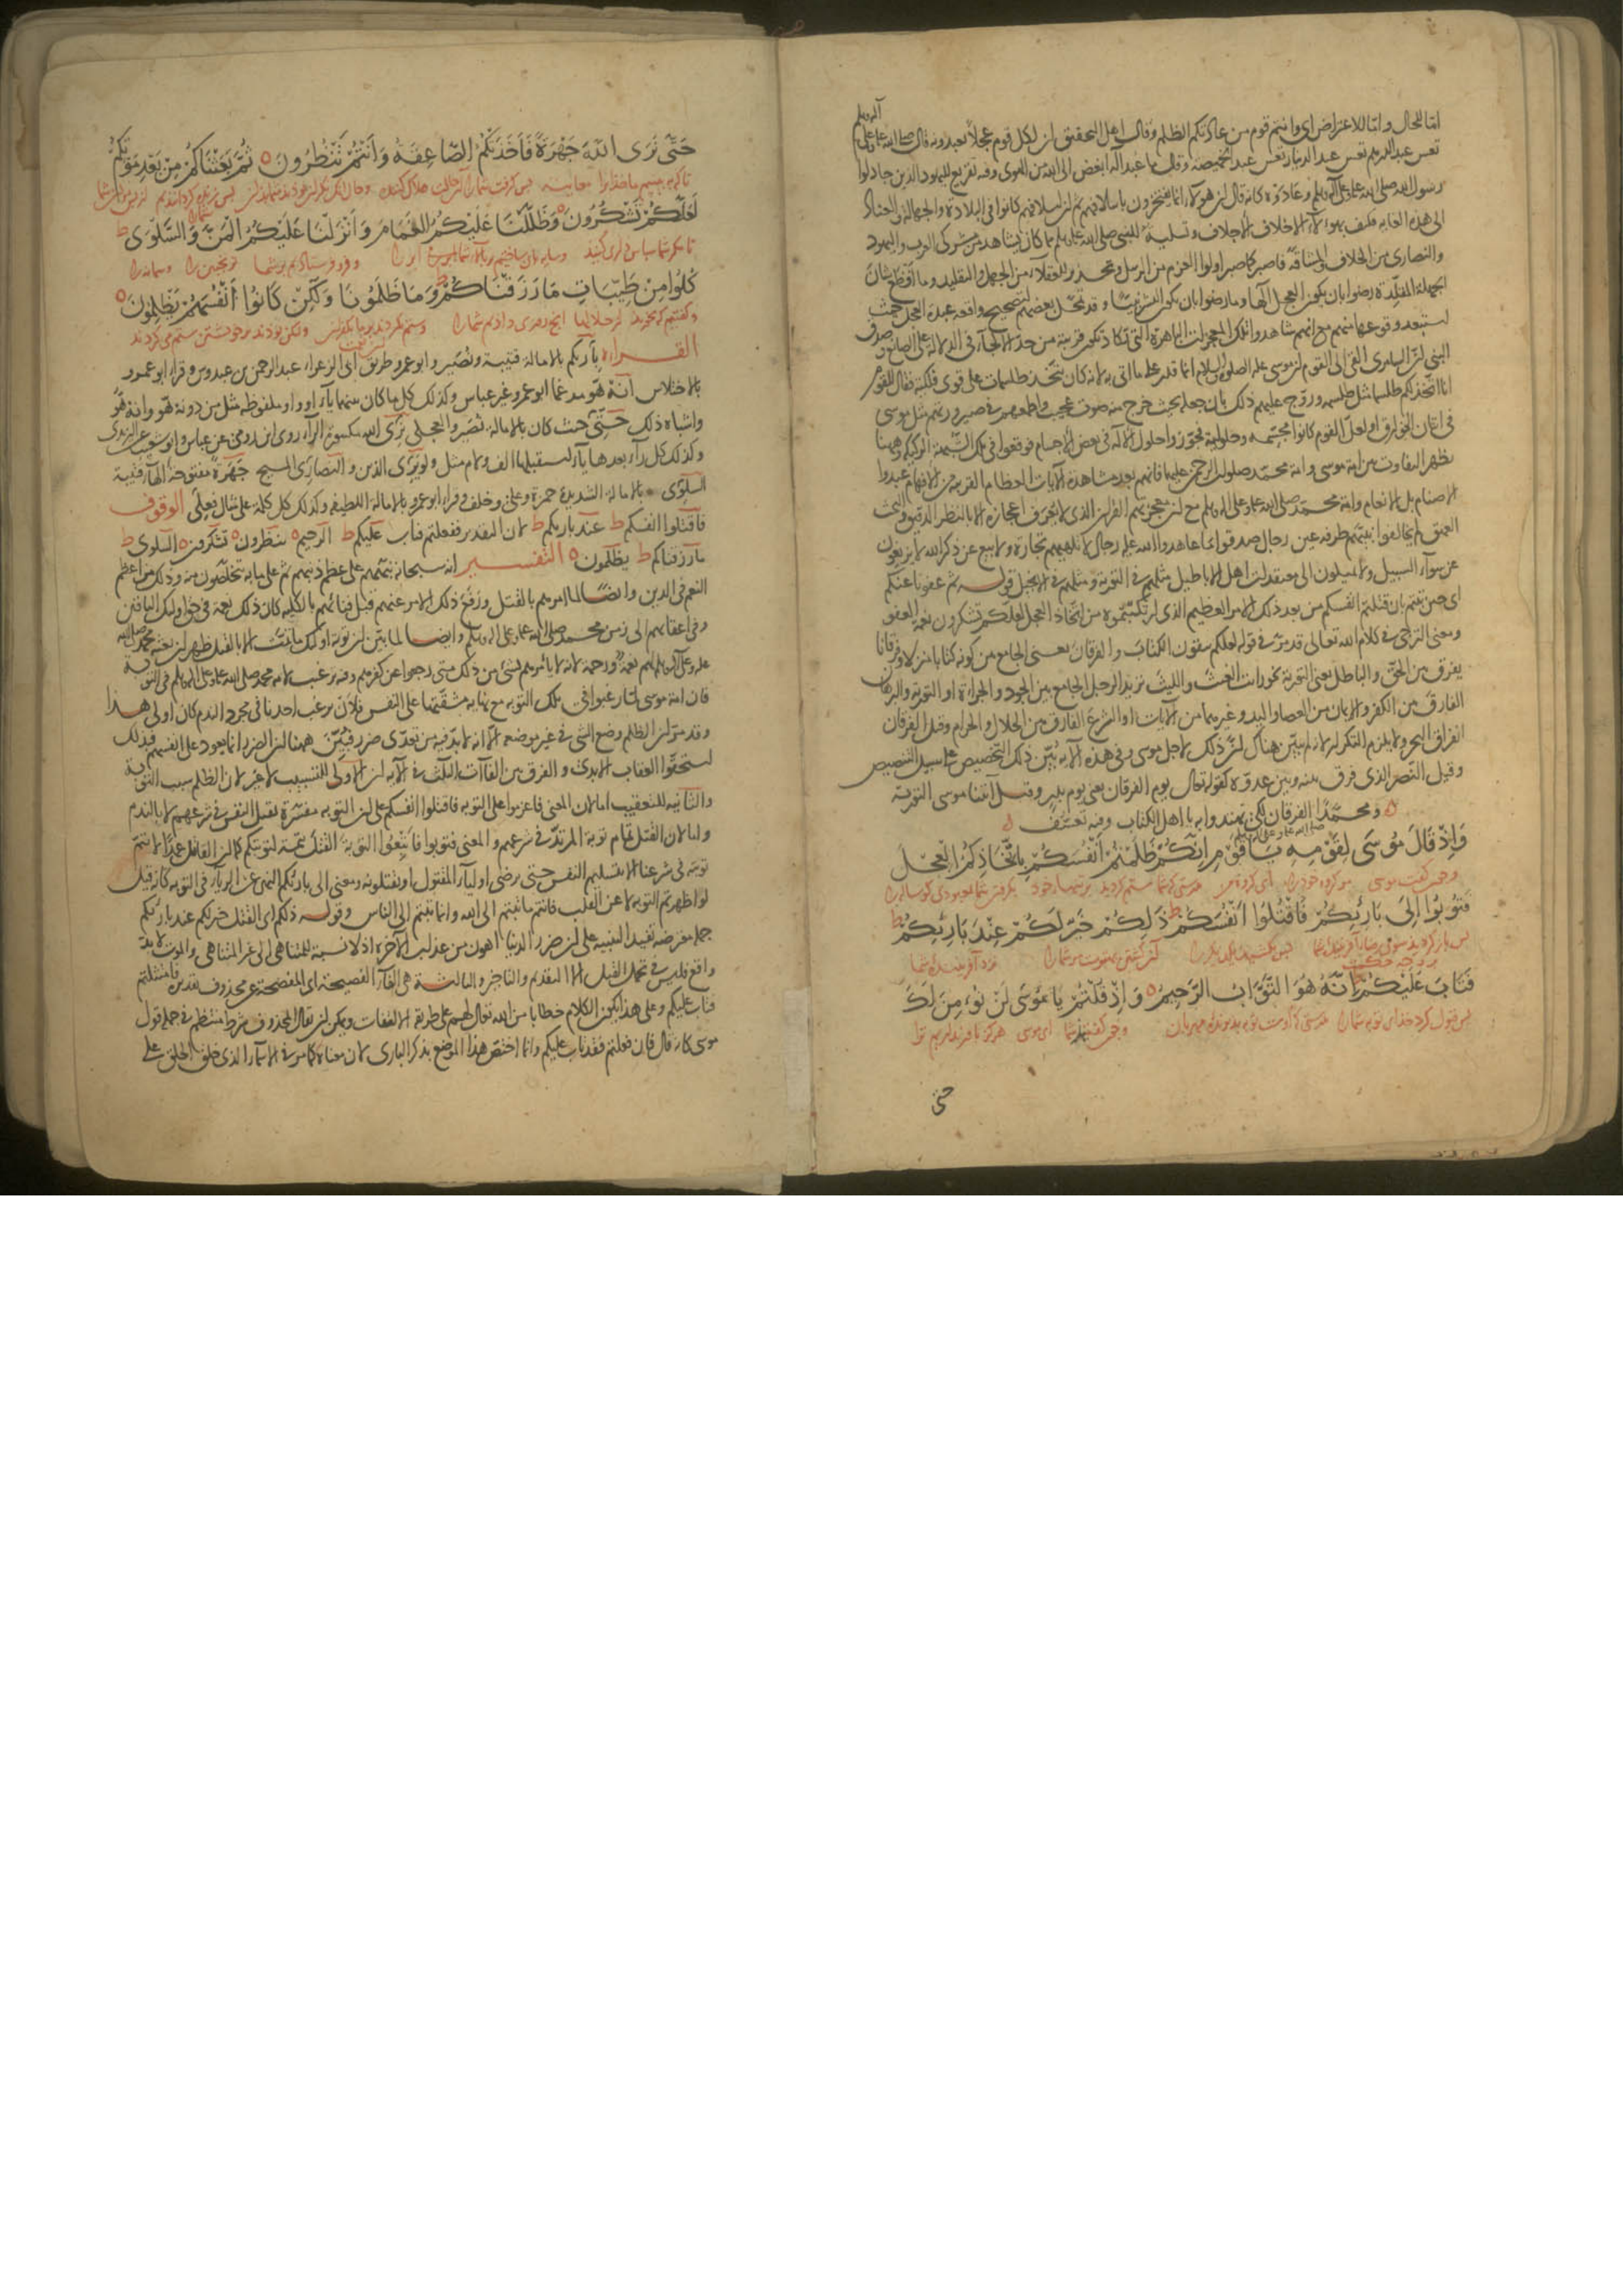 اما للحال واما للاعتراض اى وانتم قوم من عادتكم الظلم وقال اهل التحقيق ان لكل قوم عجلا يعبدونه قال صلى الله عليه وعلى آله وسلم
تعس عبد الدرهم تعس عبد الدينار تعس عبد الخميصة وقال ما عبد اله ابغض الى الله من الهوى وفيه تقريع لليهود الذين جادلوا
رسول الله صلى الله عليه وعلى آله وسلم وعادوه كانه قال ان هؤلاء انما يفتخرون باسلافهم ثم ان اسلافهم كانوا فى البلادة والجهالة والعناد
الى هذه الغاية فكيف بهؤلاء الاخلاف الاجلاف وتسلية للنبى صلى الله عليه وسلم مما كان يشاهد من مشركى العرب واليهود
والنصارى من الخلاف والمشاقة فاصبر كما صبر اولوا العزم من الرسل وتحذير للعقلاء من الجهل والتقليد وما افظع شان
الجهلة المقلدة رضوا بان يكون العجل الها وما رضوا بان يكون البشر نبيا وقد تمحل بعضهم لتصحيح واقعة عبدة العجل حيث
استبعد وقوعها منهم مع انهم شاهدوا تلك المعجزات الباهرة التى تكاد تكون قريبة من حد الالجاء فى الدلالة على الصانع وصدق
النبى ان السامرى القى الى القوم ان موسى عليه الصلوة والسلام انما قدر على ما اتى به لانه كان يتخذ طلسمات على قوى فلكية فقال للقوم
انا اتخذ لكم طلسما مثل طلسمه وروج عليهم ذلك بان جعله بحيث خرج منه صوت عجيب واطمعهم فى صيرورتهم مثل موسى
فى اتيان الخوارق او لعل القوم كانوا مجسمة وحلولية فجوزوا حلول الاله فى بعض الاجسام فوقعوا فى تلك الشبهة الركيكة وههنا
يظهر التفاوت بين امة موسى وامة محمد صلوات الرحمن عليهما فانهم بعد مشاهدة الآيات العظام القريبة من الافهام عبدوا
الاصنام بل الانعام وامة محمد صلى الله عليه وعلى آله وسلم مع ان معجزتهم القرآن الذى لا يعرف اعجازه الا بالنظر الدقيق والبحث
العميق لم يخالفوا نبيهم طرفة عين رجال صدقوا ما عاهدوا الله عليه رجال لا تلهيهم تجارة ولا بيع عن ذكر الله لا يزيغون
عن سواء السبيل ولا يميلون الى معتقدات اهل الاباطيل مثلهم فى التورية ومثلهم فى الانجيل قوله ثم عفونا عنكم
اى حين تبتم بان قتلتم انفسكم من بعد ذلك الامر العظيم الذى ارتكبتموه من اتخاذ العجل لعلكم تشكرون نعمة العفو
ومعنى الترجى فى كلام الله تعالى قد مر فى قوله لعلكم تتقون الكتاب والفرقان يعنى الجامع بين كونه كتابا منزلا وفرقانا
يفرق بين الحق والباطل يعنى التورية نحو رايت الغيث والليث تريد الرجل الجامع بين الجود والجراءة او التورية والبرهان
الفارق بين الكفر والايمان من العصا واليد وغيرهما من الآيات او الشرع الفارق بين الحلال والحرام وقيل الفرقان
انفراق البحر ولا يلزم التكرار لانه لم يبين هناك ان ذلك لاجل موسى وفى هذه الآية بين ذلك التخصيص على سبيل التنصيص
وقيل النصر الذى فرق بينه وبين عدوه كقوله تعالى يوم الفرقان يعنى يوم بدر وقيل آتينا موسى التورية
ومحمدا صلى الله عليه وعلى آله وسلم الفرقان لكى تهتدوا به يا اهل الكتاب وفيه تعسف
وَإِذْ قَالَ مُوسَى لِقَوْمِهِ يَا قَوْمِ إِنَّكُمْ ظَلَمْتُمْ أَنْفُسَكُمْ بِاتِّخَاذِكُمُ الْعِجْلَ
وچون گفت موسى مر گروه خود را اى گروه من بدرستى كه شما ستم كرديد بر تنهاء خود بگرفتن شما بمعبودى گوساله را
فَتُوبُوا إِلَى بَارِئِكُمْ فَاقْتُلُوا أَنْفُسَكُمْ ط ذَلِكُمْ خَيْرٌ لَكُمْ عِنْدَ بَارِئِكُمْ ط
پس باز گرديد بسوى آفريدگار شما پس بكشيد يكديگر را بهترست مر شما را نزد آفريننده شما
فَتَابَ عَلَيْكُمْ ط إِنَّهُ هُوَ التَّوَّابُ الرَّحِيمُ ه وَإِذْ قُلْتُمْ يَا مُوسَى لَنْ نُؤْمِنَ لَكَ
پس قبول كرد خداى توبه شما را بدرستى كه اوست توبه پذيرنده مهربان وچون گفتيد شما اى موسى هرگز باور نداريم ترا
حتى
حَتَّى نَرَى اللهَ جَهْرَةً فَأَخَذَتْكُمُ الصَّاعِقَةُ وَأَنْتُمْ تَنْظُرُونَ ه ثُمَّ بَعَثْنَاكُمْ مِنْ بَعْدِ مَوْتِكُمْ
تا كه ببينيم ما خدا را معاينه پس گرفت شما را هلاك كننده
لَعَلَّكُمْ تَشْكُرُونَ ه وَظَلَّلْنَا عَلَيْكُمُ الْغَمَامَ وَأَنْزَلْنَا عَلَيْكُمُ الْمَنَّ وَالسَّلْوَى ط
تا مگر شما سپاس دارى كنيد وسايه بان ساختيم بر بالاء شما ابر را وفرو فرستاديم بر شما ترنجبين را وسمانه را
كُلُوا مِنْ طَيِّبَاتِ مَا رَزَقْنَاكُمْ ط وَمَا ظَلَمُونَا وَلَكِنْ كَانُوا أَنْفُسَهُمْ يَظْلِمُونَ ه
وگفتيم كه بخوريد از حلالها آنچه روزى داديم شما را وستم نكردند بر ما وليكن بودند بر خويشتن ستم مى كردند
القراءة بارئكم بالامالة قتيبة ونصير وابو عمرو طريق ابى الزعراء عبد الرحمن بن عبدوس وقرأ ابو عمرو
بالاختلاس انه هو مدغما ابو عمرو غير عباس وكذلك كل ما كان بينهما ياء او واو ملفوظة مثل من دونه هو وانه هو
واشباه ذلك حتى حيث كان بالامالة نصير والعجلى نرى الله مكسورة الراء روى ابن رومى عن عباس وابو شعيب عن اليزيدى
وكذلك كل راء بعدها ياء استقبلها الف ولام مثل ولو يرى الذين والنصارى المسيح جهرة مفتوحة الهاء قتيبة
السلوى بالامالة الشديدة حمزة وعلى وخلف وقرأ ابو عمرو بالامالة اللطيفة وكذلك كل كلمة على مثال فعلى الوقوف
فاقتلوا انفسكم ط عند بارئكم ط لان التقدير ففعلتم فتاب عليكم ط الرحيم ه تنظرون ه تشكرون ه السلوى ط
ما رزقناكم ط يظلمون ه التفسير انه سبحانه نبههم على عظم ذنبهم ثم على ما به يتخلصون منه وذلك من اعظم
النعم فى الدين وايضا لما امرهم بالقتل ورفع ذلك الامر عنهم قبل فنائهم بالكلية كان ذلك نعمة فى حق اولئك الباقين
وفى اعقابهم الى زمن محمد صلى الله عليه وعلى آله وسلم وايضا لما بين ان توبة اولئك ما تمت الا بالقتل ظهر ان بعثة محمد صلى الله
عليه وعلى آله وسلم لهم نعمة ورحمة لانه لا يأمرهم بشئ من ذلك متى رجعوا عن كفرهم وفيه ترغيب لامة محمد صلى الله عليه وعلى آله وسلم فى التوبة
فان امة موسى لما رغبوا فى تلك التوبة مع نهاية مشقتها على النفس فلان يرغب احدنا فى مجرد الندم كان اولى هذا
وقد مر ان الظلم وضع الشئ فى غير موضعه الا انه لا بد فيه من تعدى ضرر فبين ههنا ان الضرر انما يعود على انفسهم فبذلك
استحقوا العقاب الابدى والفرق بين الفاءات الثلث فى الآية ان الاولى للتسبيب لا غير لان الظلم سبب التوبة
والثانية للتعقيب اما لان المعنى فاعزموا على التوبة فاقتلوا انفسكم على ان التوبة مفسرة بقتل النفس فى شرعهم لا بالندم
واما لان القتل تمام توبة المرتد فى شرعهم والمعنى فتوبوا فاتبعوا التوبة القتل تتمة لتوبتكم كما ان القاتل عمدا لا تتم
توبته فى شرعنا الا بتسليم النفس حتى رضى اولياء المقتول او يقتلونه ومعنى الى بارئكم النهى عن الرياء فى التوبة كانه قيل
لو اظهرتم التوبة لا عن القلب فانتم ما تبتم الى الله وانما تبتم الى الناس وقوله ذلكم اى القتل خير لكم عند بارئكم
جملة معترضة تفيد التنبيه على ان ضرر الدنيا اهون من عذاب الآخرة اذ لا نسبة للمتناهى الى غير المتناهى والموت لا بد
واقع فليس فى تحمل القتل الا التقديم والتاخير والثالثة هى الفاء الفصيحة اى المفصحة عن محذوف تقديره فامتثلتم
فتاب عليكم وعلى هذا يكون الكلام خطابا من الله تعالى لهم على طريقة الالتفات ويمكن ان يقال المحذوف شرط منتظم فى جملة قول
موسى كانه قال فان فعلتم فقد تاب عليكم وانما اختص هذا الموضع بذكر البارى لان معناه كما مر فى الاسماء الذى خلق الخلق على